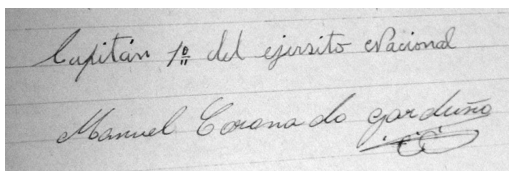 Capitán 1º del ejersito Nacional
Manuel Coronado garduño